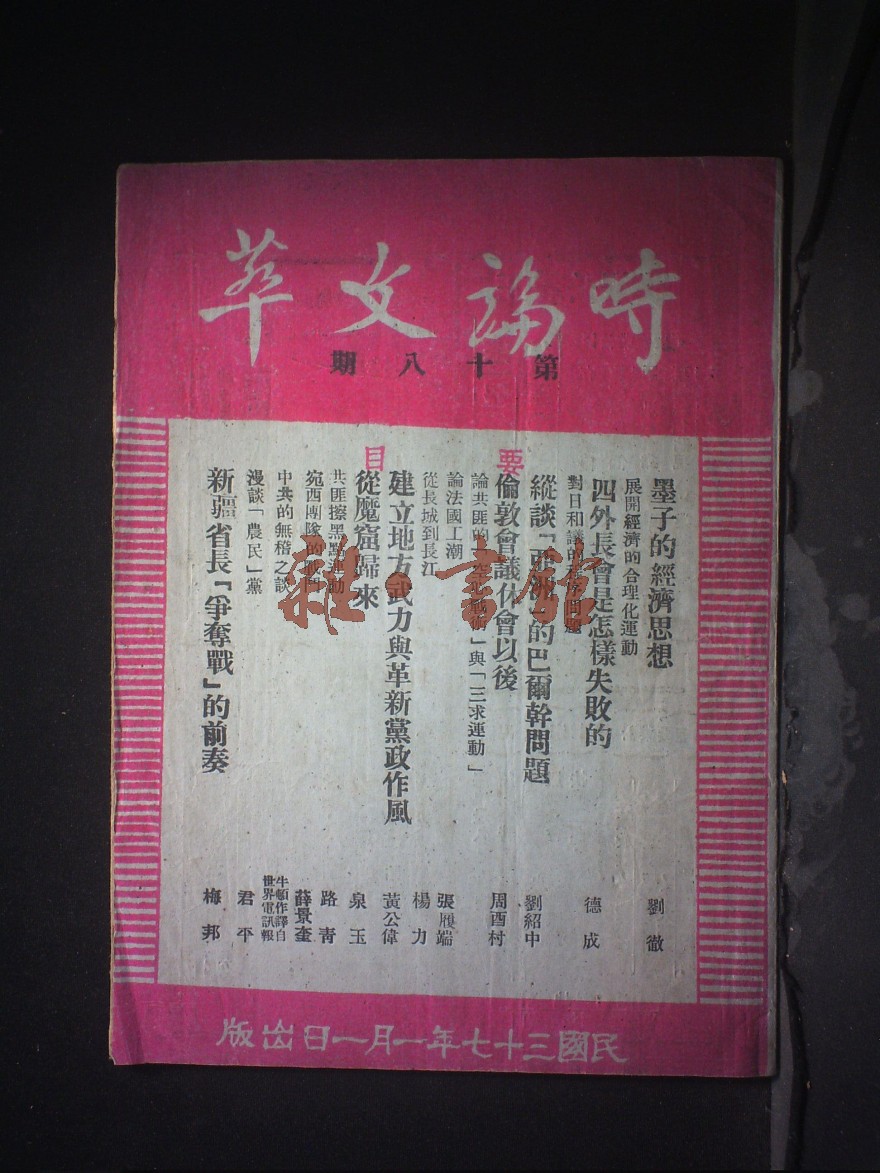 時論文萃
第十八期
要目
墨子的經濟思想 劉徹
展開經濟的合理化運動
四外長會是怎樣失敗的 德成
對日和議的程序問題
縱談「亞洲」的巴爾幹問題 劉紹中
倫敦會議休會以後 周酉村
論共匪的「空心戰術」與「三求運動」
論法國工潮 張履端
從長城到長江 楊力
建立地方武力與革新黨政作風 黃公偉
從魔窟歸來 泉玉
共匪擦黑點運動 路青
宛西團隊的戰鬥 薛景奎
中共的無稽之談 牛頓作譯自世界電訊報
漫談「農民」黨 君平
新疆省長「爭奪戰」的前奏 梅邦
民國三十七年一月一日出版
雜·書館